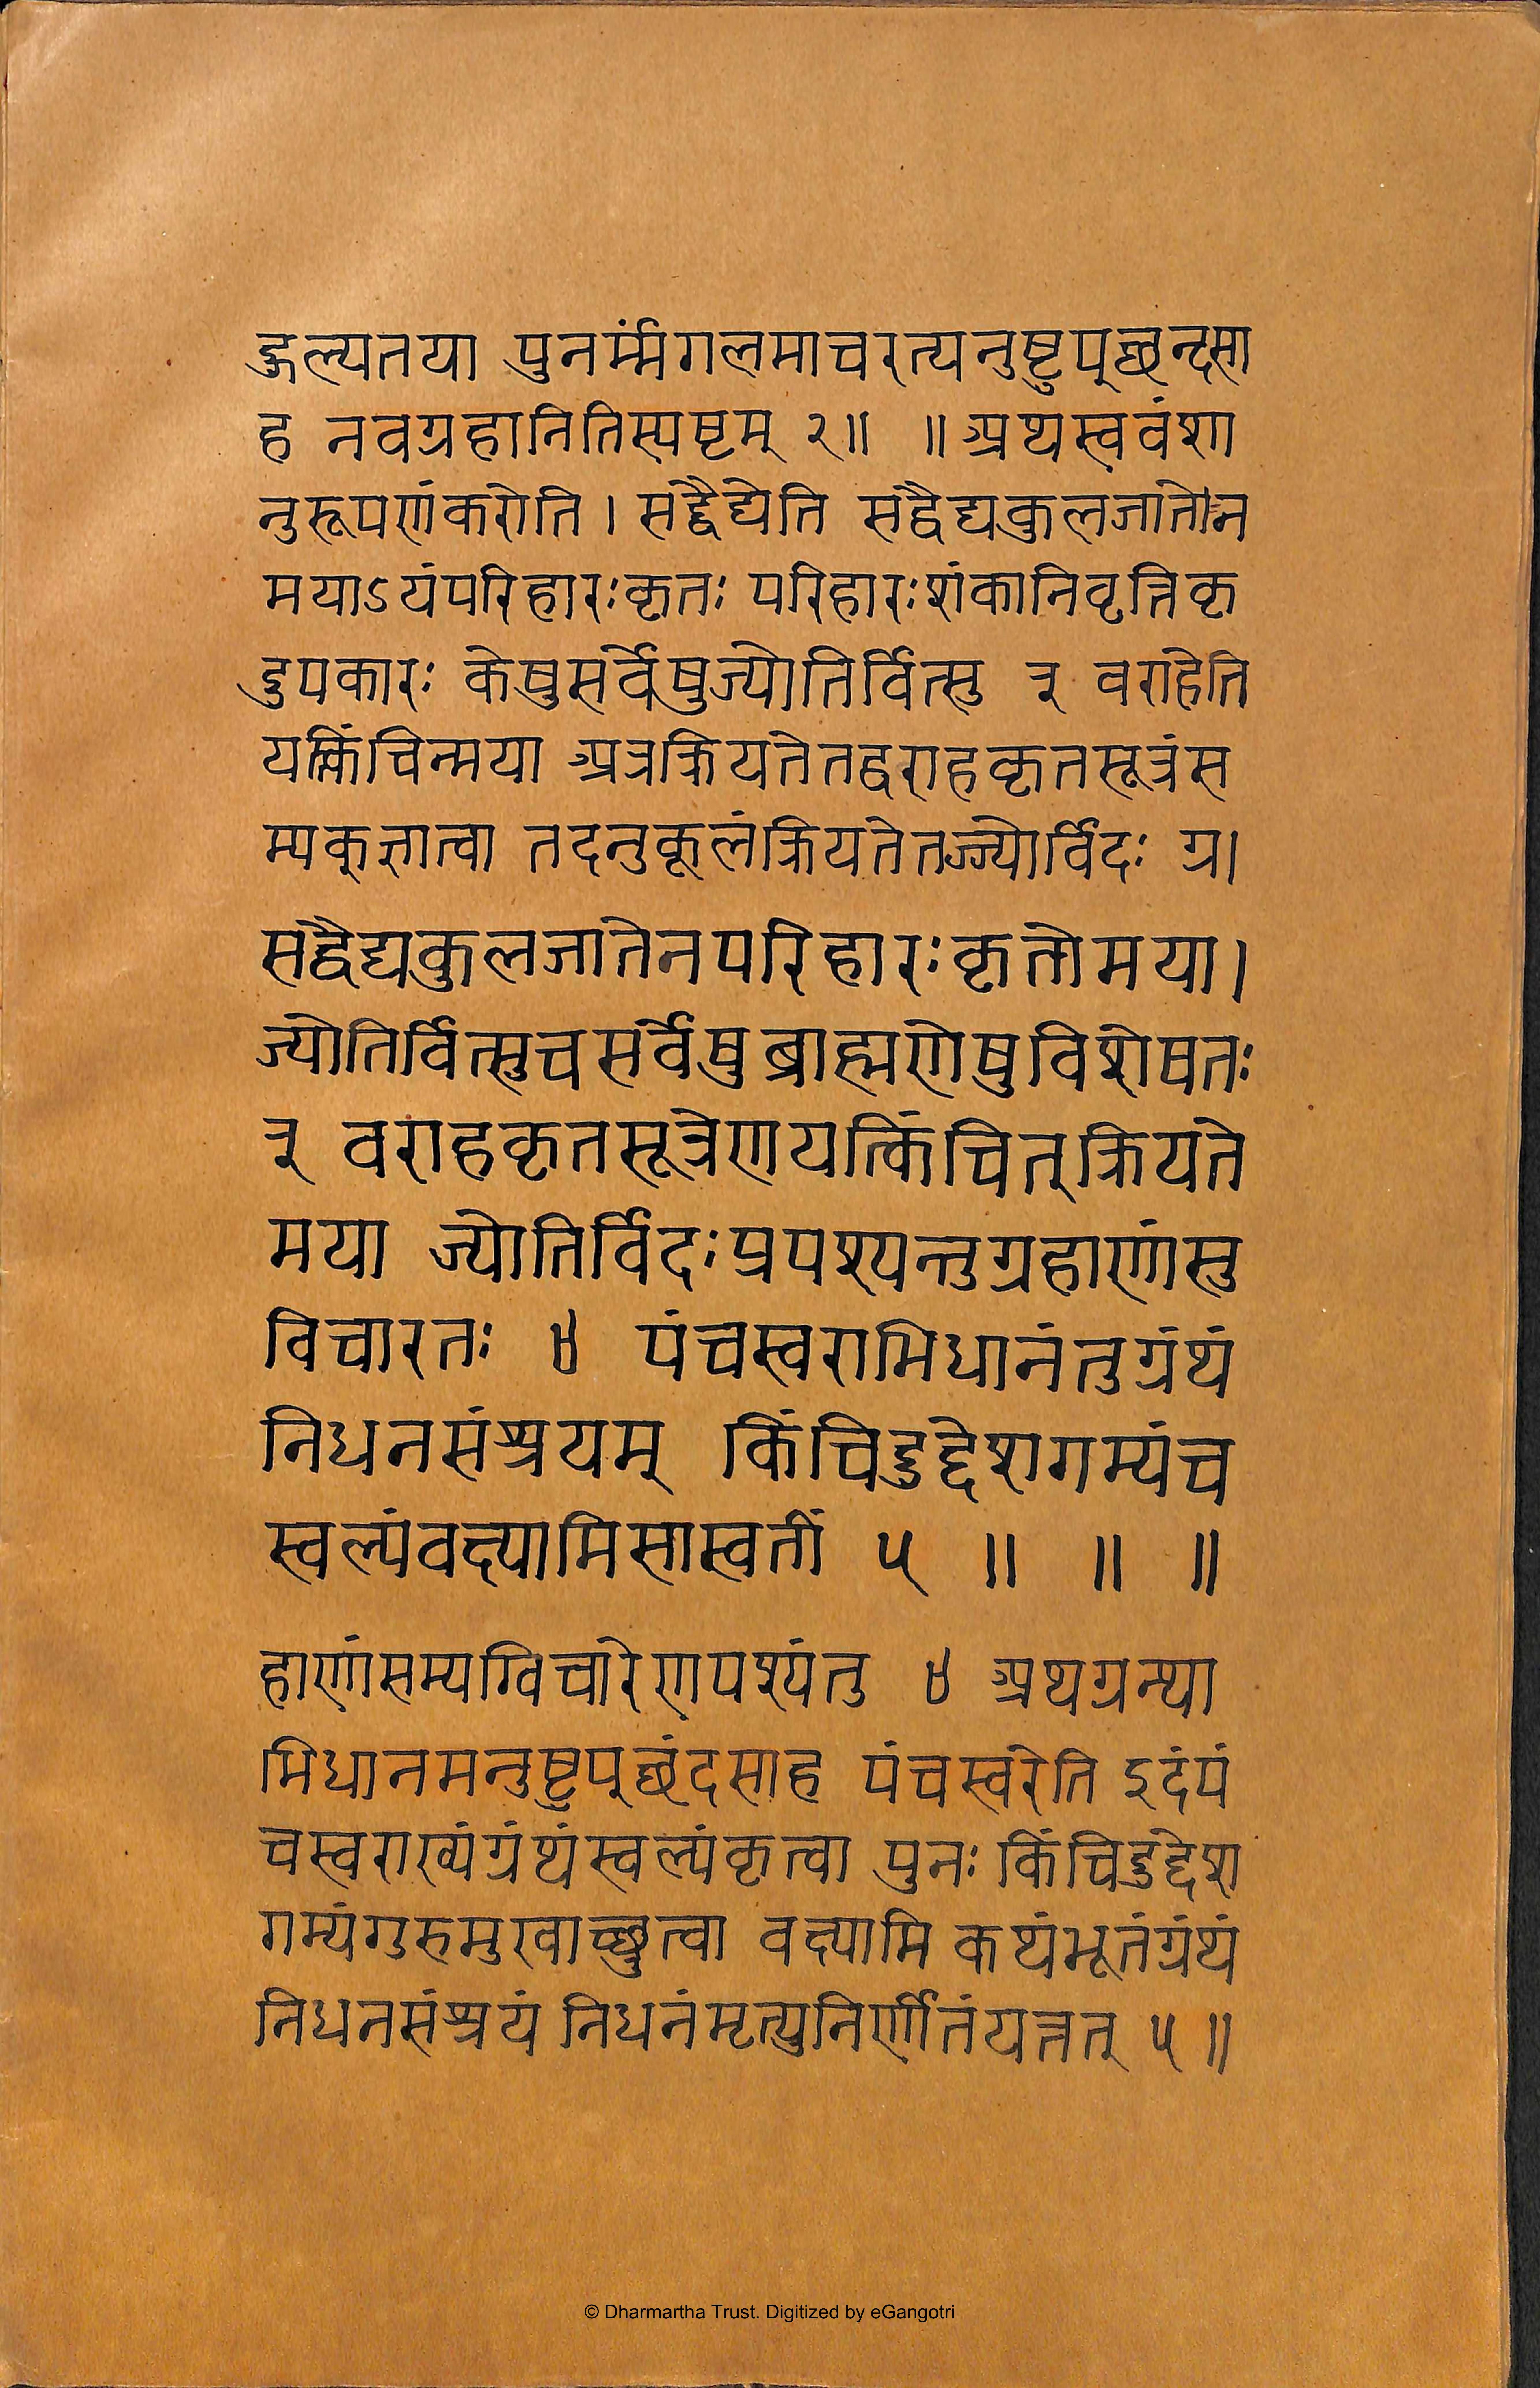 ङ्गल्यतया पुनर्म्मंगलमाचरत्यनुष्टुप्छन्दसा
ह नवग्रहानितिस्पष्टम् २॥ ॥अथस्ववंशा
नुरूपणंकरोति। सद्वैद्येति सद्वैद्यकुलजातेन
मयाऽयंपरिहारःकृतः परिहारःशंकानिवृत्तिकृ
दुपकारः केषुसर्वेषुज्योतिर्वित्सु ३ वराहेति
यत्किंचिन्मया अत्रक्रियतेतद्वराहकृतसूत्रंस
म्यक्ज्ञात्वा तदनुकूलंक्रियतेतज्ज्योर्विदः ग्र।
सद्वैद्यकुलजातेनपरिहारःकृतोमया।
ज्योतिर्वित्सुचसर्वेषुब्राह्मणेषुविशेषतः
३ वराहकृतसूत्रेणयत्किंचित्क्रियते
मया ज्योतिर्विदःप्रपश्यन्तुग्रहाणांसु
विचारतः ४ पंचस्वराभिधानंतुग्रंथं
निधनसंश्रयम् किंचिदुद्देशगम्यंच
स्वल्पंवक्ष्यामिसास्वतीं ५ ॥ ॥ ॥
हाणांसम्यग्विचारेणपश्यंतु ४ अथग्रन्था
भिधानमनुष्टुप्छंदसाह पंचस्वरेति इदंपं
चस्वराख्यंग्रंथंस्वल्पंकृत्वा पुनः किंचिदुद्देश
गम्यंगुरुमुखाच्छ्रुत्वा वक्ष्यामि कथंभूतंग्रंथं
निधनसंश्रयं निधनंमृत्युनिर्णीतंयत्तत् ५॥
© Dharmartha Trust. Digitized by eGangotri